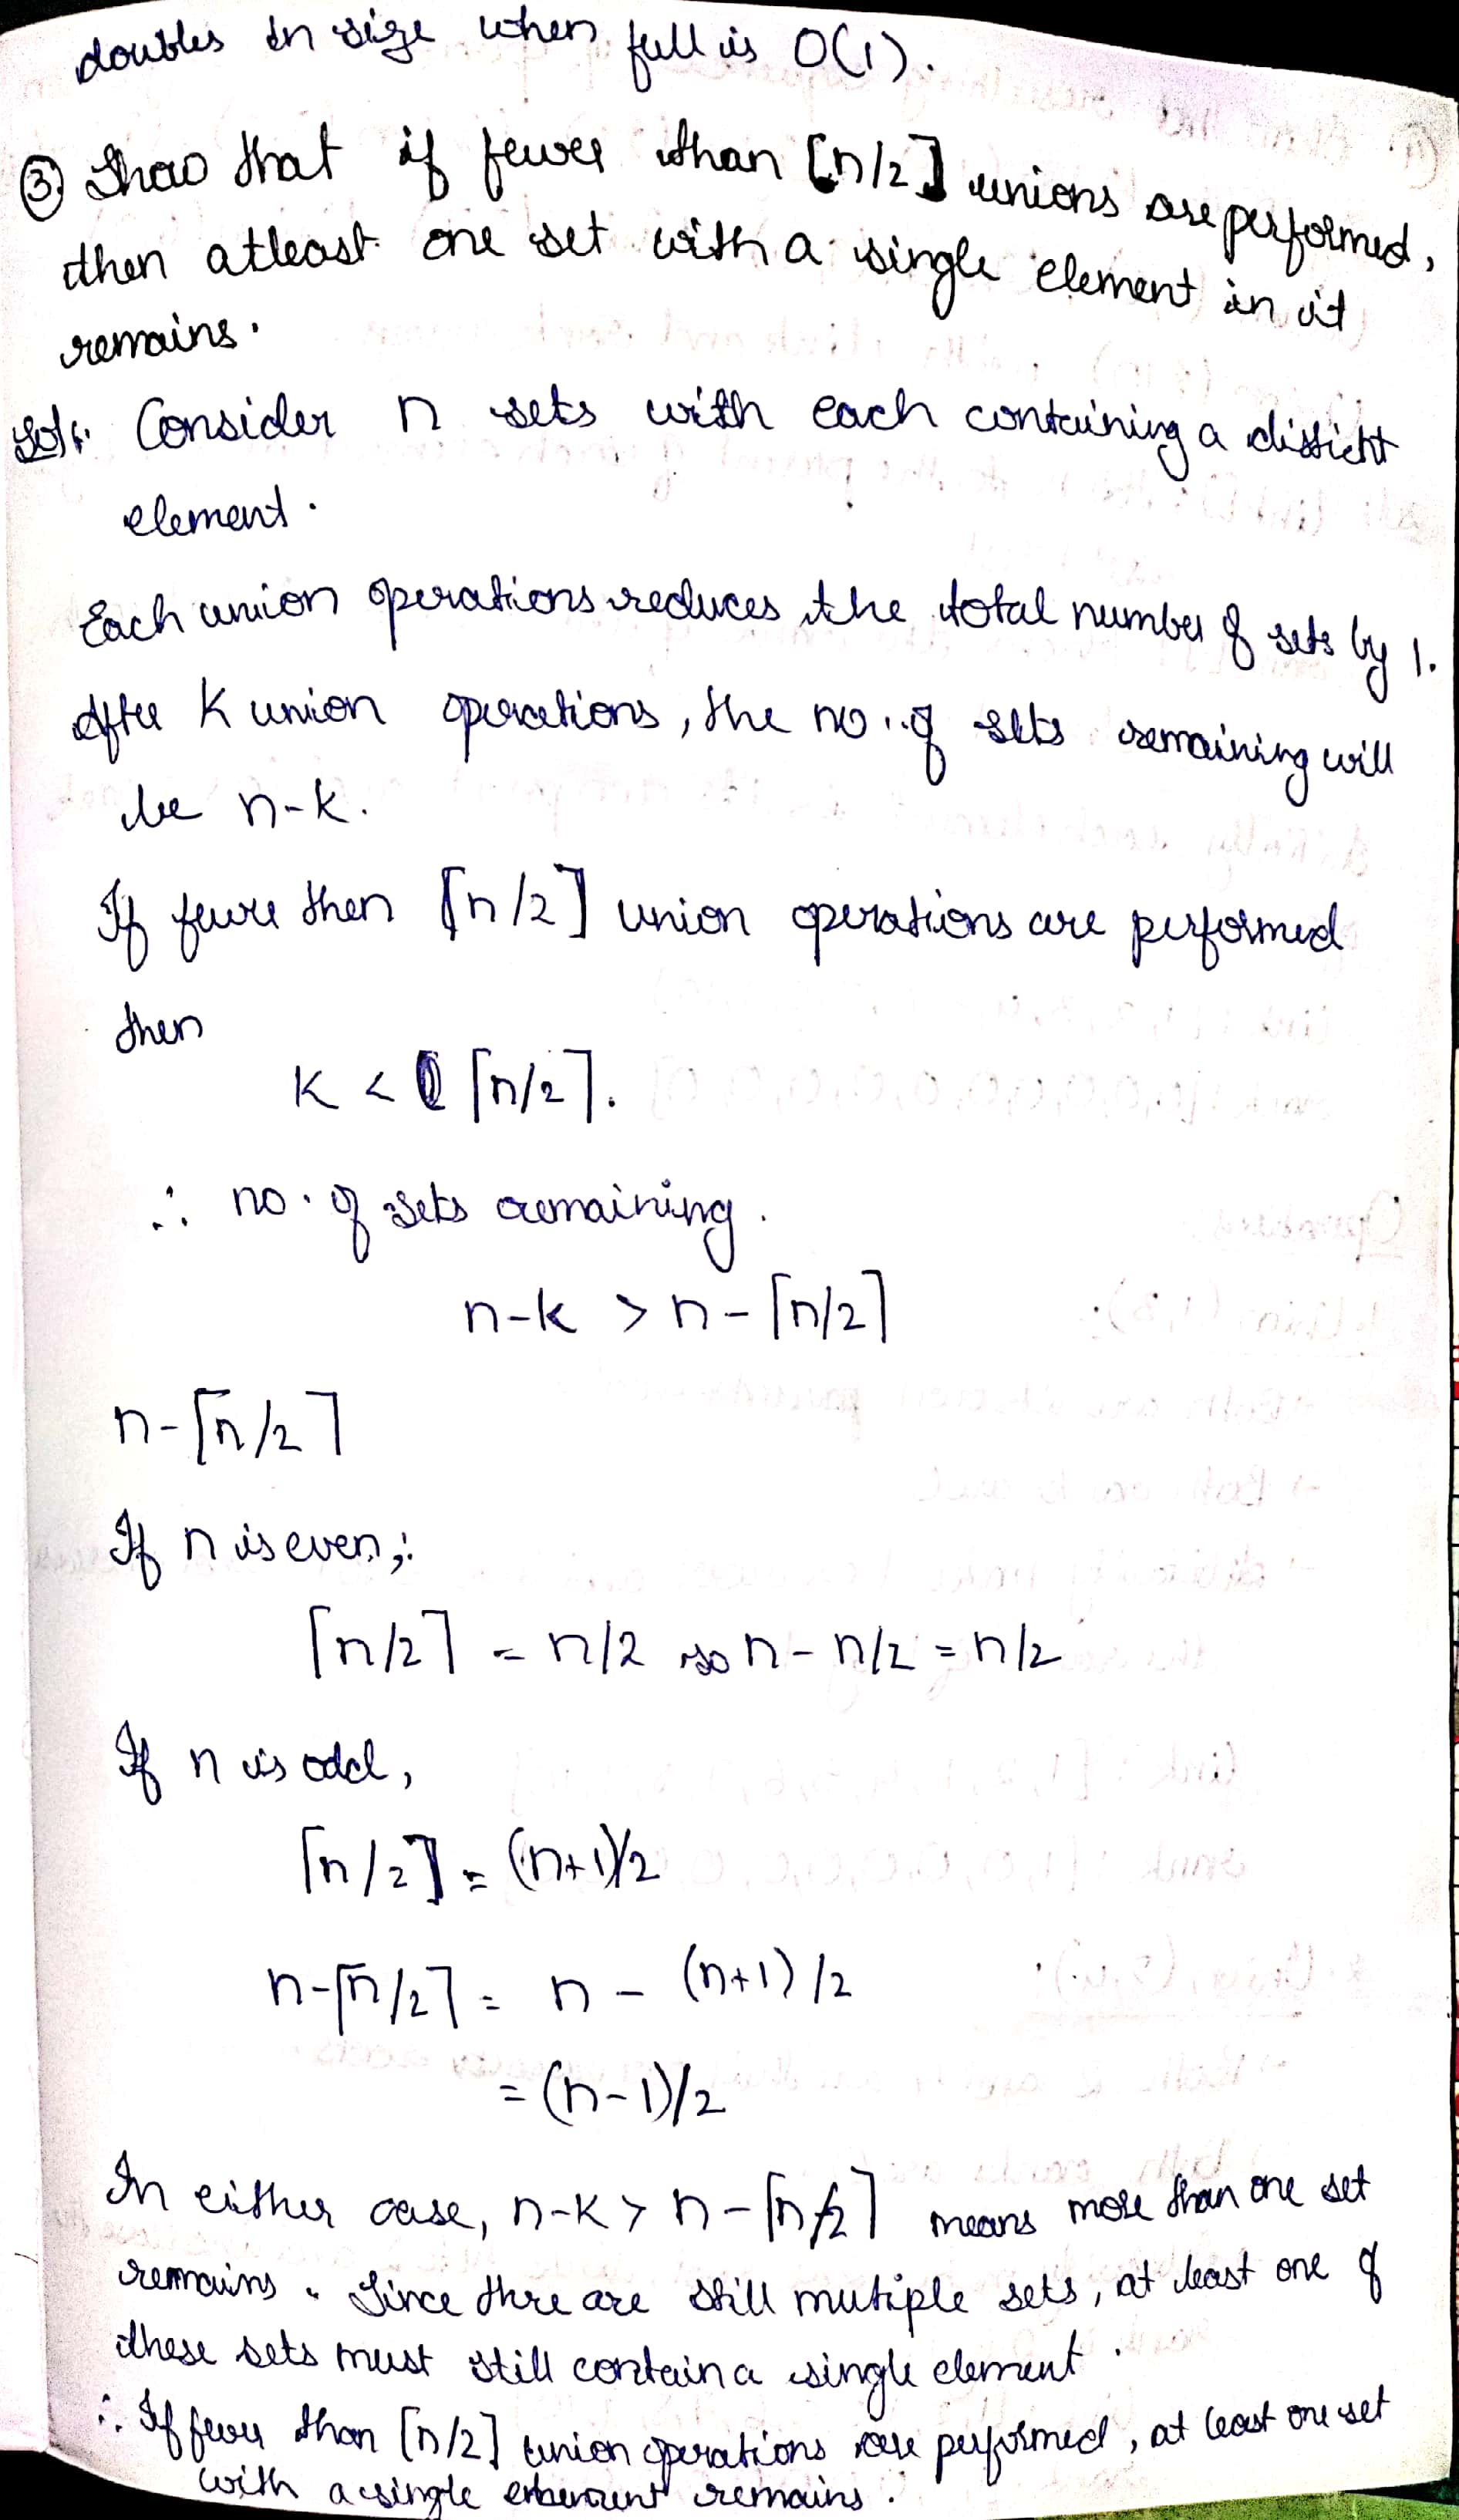 doubles in size when full is O(1).
③ Show that if fewer than ⌈n/2⌉ unions are performed,
then atleast one set with a single element in it
remains.
Sol: Consider n sets with each containing a distinct
element.
Each union operations reduces the total number of sets by 1.
After K union operations, the no. of sets remaining will
be n-k.
If fewer then ⌈n/2⌉ union operations are performed
then
K < ⌈n/2⌉.
∴ no. of sets remaining.
n-k > n-⌈n/2⌉
n-⌈n/2⌉
If n is even,:
⌈n/2⌉ = n/2 so n - n/2 = n/2
If n is odd,
⌈n/2⌉ = (n+1)/2
n-⌈n/2⌉ = n - (n+1)/2
= (n-1)/2
In either case, n-k > n-⌈n/2⌉ means more than one set
remains. Since there are still mutiple sets, at least one of
these sets must still contain a single element.
∴ If fewer than ⌈n/2⌉ union operations are performed, at least one set
with a single remains.